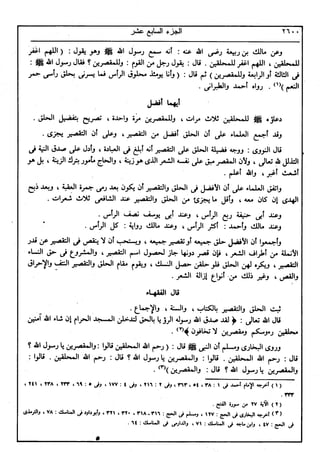 ٢٦٠٠ الجزء السابع عشر
وعن مالك بن ربيعة رضى الله عنه : أنه سمع رسول الله ﷺ وهو يقول : ( اللهم اغفر
للمحلقين ، اللهم اغفر للمحلقين . قال : يقول رجل من القوم : وللمقصرين ؟ فقال رسول الله ﷺ :
فى الثالثة أو الرابعة وللمقصرين ) ثم قال : ( وأنا يومئذ محلوق الرأس فما يسرنى بحلق رأسى حمر
النعم )(١) . رواه أحمد والطبرانى .
أيهما أفضل
دعاؤه ﷺ للمحلقين ثلاث مرات ، وللمقصرين مرة واحدة ، تصريح بتفضيل الحلق .
وقد أجمع العلماء على أن الحلق أفضل من التقصير ، وعلى أن التقصير يجزى .
قال النووى : ووجه فضيلة الحلق على التقصير أنه أبلغ فى العبادة ، وأدل على صدق النية فى
التذلل لله تعالى ، ولأن المقصر مبق على نفسه الشعر الذى هو زينة ، والحاج مأمور بترك الزينة ، بل هو
أشعث أغبر ، والله أعلم .
واتفق العلماء على أن الأفضل فى الحلق والتقصير أن يكون بعد رمى جمرة العقبة ، وبعد ذبح
الهدى إن كان معه ، وأقل ما يجزئ من الحلق والتقصير عند الشافعى ثلاث شعرات .
وعند أبى حنيفة ربع الرأس ، وعند أبى يوسف نصف الرأس .
وعند مالك وأحمد : أكثر الرأس ، وعند مالك رواية : كل الرأس .
وأجمعوا أن الأفضل حلق جميعه أو تقصير جميعه ، ويستحب أن لا ينقص فى التقصير عن قدر
الأنملة من أطراف الشعر ، فإن قصر دونها جاز لحصول اسم التقصير ، والمشروع فى حق النساء
التقصير ، ويكره لهن الحلق فلو حلقن حصل النسك ، ويقوم مقام الحلق والتقصير النتف والإحراق
والقص ، وغير ذلك من أنواع إزالة الشعر .
قال الفقهاء
ثبت الحلق والتقصير بالكتاب ، والسنة ، والإجماع .
قال الله تعالى : ﴿ لقد صدق الله رسوله الرؤيا بالحق لتدخلن المسجد الحرام إن شاء الله آمنين
محلقين رءوسكم ومقصرين لا تخافون ﴾(٢) .
وروى البخارى ومسلم أن النبى ﷺ قال : ( رحم الله المحلقين قالوا : والمقصرين يا رسول الله ؟
قال : رحم الله المحلقين . قالوا : والمقصرين يا رسول الله ؟ قال : رحم الله المحلقين . قالوا :
والمقصرين يا رسول الله ؟ قال : والمقصرين )(٣) .
(١) أخرجه الإمام أحمد فى ١ : ٣٨ ، ٥٤ ، ٣٦٣ ، وفى ٢ : ٢١٦ ، وفى ٤ : ١٧٧ ، وفى ٥ : ٦٩ ، ٢٣٣ ، ٢٣٨ ، ٢٤١ ،
٣٣٣ .
(٢) الآية ٢٧ من سورة الفتح .
(٣) أخرجه البخارى فى الحج : ١٢٧ ، ومسلم فى الحج : ٣١٦ ـ ٣١٨ ، ٣٢٠ ، ٣٢١ ، وأبوداود فى المناسك : ٧٨ ، والترمذى
فى الحج : ٤٧ ، وابن ماجه فى المناسك : ٧١ ، والدارمى فى المناسك : ٦٤ .